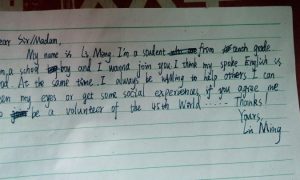 ear Sir/Madam,
My name is Li Ming. I'm a student from each grade
m a school boy and I wanna join you. I think my spoke English is
od. At the same time. I always be willing to help others. I can
en my eyes or get some social experiences if you agree me
o be a volunteer of the 45th World ..... Thanks!
Yours,
Lin Ming